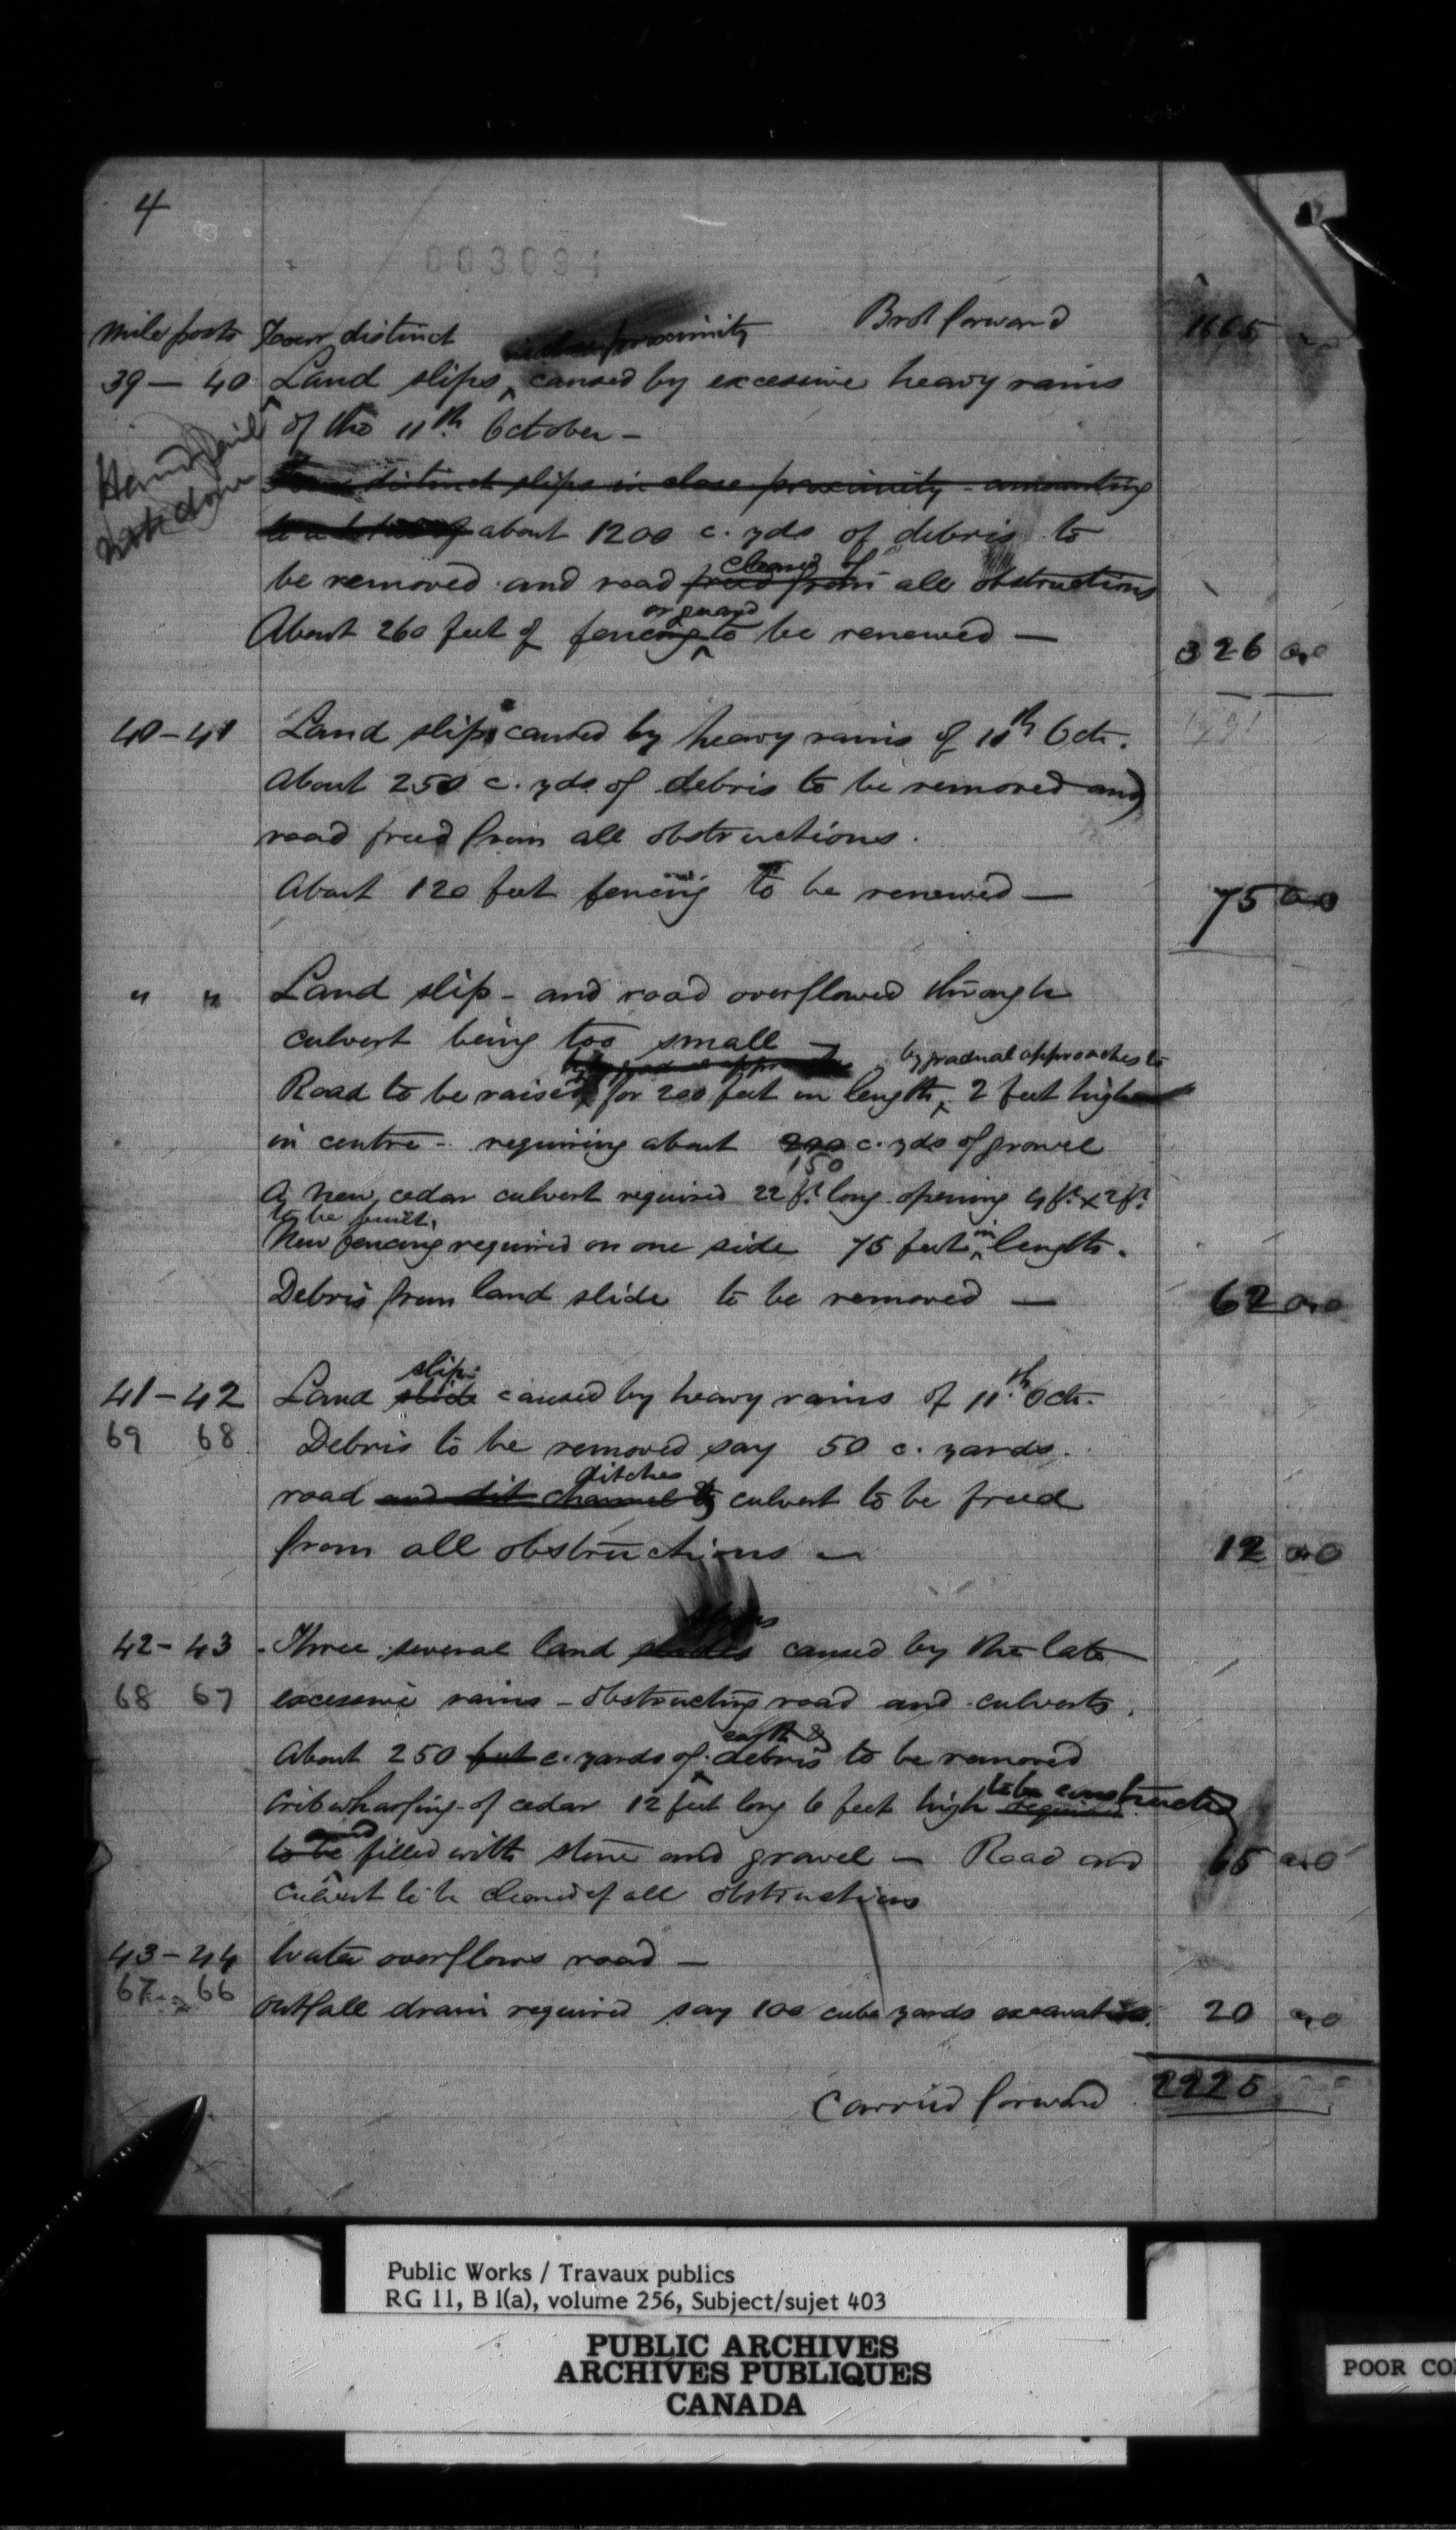 4
003091
Brot forward 1665
Mile posts Four distinct in close proximity
39 — 40 Land slips caused by excessive heavy rains
of the 11th October —
Hand rail
not done
distinct slips in close proximity - amounting
about 1200 c. yds of debris to
cleared of
be removed and road freed from all obstructions
or guard
About 260 feet of fencing to be renewed — 326 00
40 - 41 Land slips caused by heavy rains of 11th Oct.
About 250 c. yds of debris to be removed and
road freed from all obstructions.
About 120 feet fencing to be renewed — 75 00
" " Land slip - and road overflowed through
culvert being too small —
by gradual approaches to
Road to be raised for 200 feet in length, 2 feet high
in centre - requiring about 200 c. yds of gravel
150
A new cedar culvert required 22 ft. long opening 4 ft. x 2 ft.
to be built.
New fencing required on one side 75 feet in length.
Debris from land slide to be removed — 62 00
slip
41 - 42 Land slide caused by heavy rains of 11th Oct.
69 68 Debris to be removed say 50 c. yards.
ditches &
road and dit channel to culvert to be freed
from all obstructions — 12 00
slips
42 - 43 Three several land slides caused by the late
68 67 excessive rains - obstructing road and culverts.
earth &
About 250 feet c. yards of debris to be removed
to be constructed
Crib wharfing of cedar 12 feet long 6 feet high required
and
to be filled with stone and gravel — Road and 65 00
culvert to be cleared of all obstructions
43 - 44 Water overflows road —
67 66 Outfall drain required say 100 cube yards excavation. 20 00
Carried forward 2225
Public Works / Travaux publics
RG 11, B 1(a), volume 256, Subject/sujet 403
PUBLIC ARCHIVES
ARCHIVES PUBLIQUES
CANADA
POOR CO